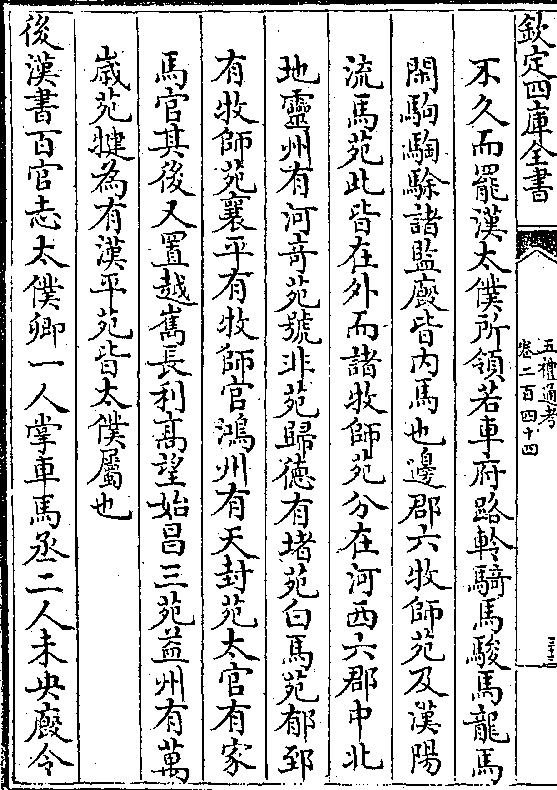 欽定四庫全書
五禮通考
卷二百四十四
三十三
不久而罷漢太僕所領若車府路軨騎馬駿馬龍馬
閑駒騊駼諸監廄皆内馬也邊郡六牧師苑及漢陽
流馬苑此皆在外而諸牧師苑分在河西六郡中北
地靈州有河竒苑號非苑歸德有堵苑白馬苑郁郅
有牧師苑襄平有牧師官鴻州有天封苑太官有家
馬官其後又置越嶲長利髙望始昌三苑益州有萬
嵗苑犍為有漢平苑皆太僕屬也
後漢書百官志太僕卿一人掌車馬丞二人未央廄令